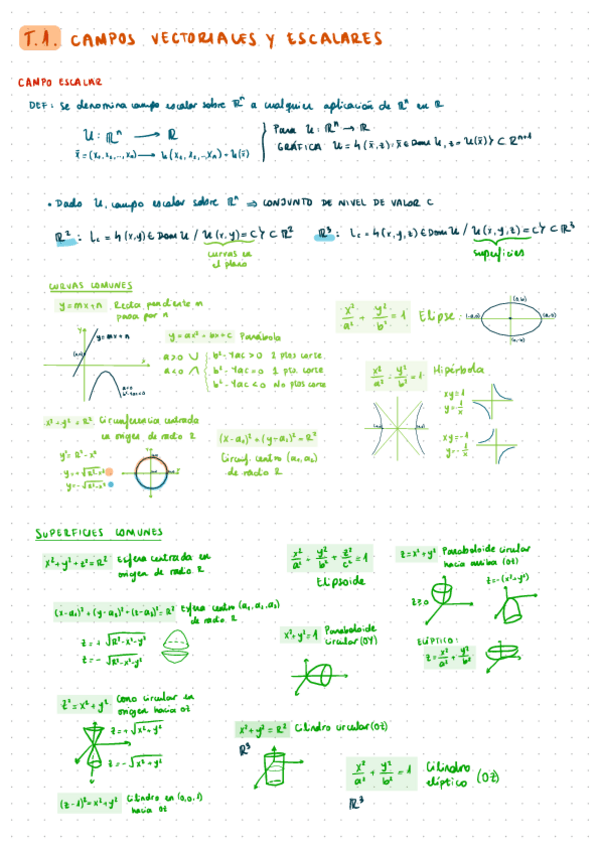 T.1. CAMPOS VECTORIALES Y ESCALARES
CAMPO ESCALAR
DEF: Se denomina campo escalar sobre ℝⁿ a cualquier aplicación de ℝⁿ en ℝ
U: ℝⁿ → ℝ
x̄ = (x₁, x₂, ..., xₙ) → U(x₁, x₂, ..., xₙ) = U(x̄)
Para U: ℝⁿ → ℝ
GRÁFICA U = {(x̄, z): x̄ ∈ Dom U, z = U(x̄)} ⊂ ℝⁿ⁺¹
• Dado U, campo escalar sobre ℝⁿ ⇒ CONJUNTO DE NIVEL DE VALOR C
ℝ²: L_c = {(x,y) ∈ Dom U / U(x,y) = C} ⊂ ℝ²
curvas en
el plano
ℝ³: L_c = {(x,y,z) ∈ Dom U / U(x,y,z) = C} ⊂ ℝ³
superficies
CURVAS COMUNES
y = mx + n Recta pendiente m
pasa por n
y = mx + n
y = ax² + bx + c Parábola
a > 0 ∪
a < 0 ∩
b² - 4ac > 0 2 ptos corte
b² - 4ac = 0 1 pto corte
b² - 4ac < 0 No ptos corte
a < 0
b² - 4ac < 0
x²/a² + y²/b² = 1 Elipse:
x²/a² - y²/b² = 1 Hipérbola
xy = 1
y = 1/x
xy = -1
y = -1/x
x² + y² = R² Circunferencia centrada
en origen de radio R
y² = R² - x²
y = +√R² - x²
y = -√R² - x²
(x - a₁)² + (y - a₂)² = R²
Circunf. centro (a₁, a₂)
de radio R
SUPERFICIES COMUNES
x² + y² + z² = R² Esfera centrada en
origen de radio R
x²/a² + y²/b² + z²/c² = 1
Elipsoide
z = x² + y² Paraboloide circular
hacia arriba (OZ)
z ≥ 0
z = -(x² + y²)
(x - a₁)² + (y - a₂)² + (z - a₃)² = R² Esfera centro (a₁, a₂, a₃)
de radio R
z = +√R² - x² - y²
z = -√R² - x² - y²
Paraboloide
circular (OY)
ELÍPTICO:
z = x²/a² + y²/b²
z² = x² + y² Cono circular en
origen hacia OZ
z = +√x² + y²
z = -√x² + y²
x² + y² = R² Cilindro circular (OZ)
ℝ³
x²/a² + y²/b² = 1 Cilindro
elíptico (OZ)
ℝ³
(z - 1)² = x² + y² Cilindro en (0,0,1)
hacia OZ